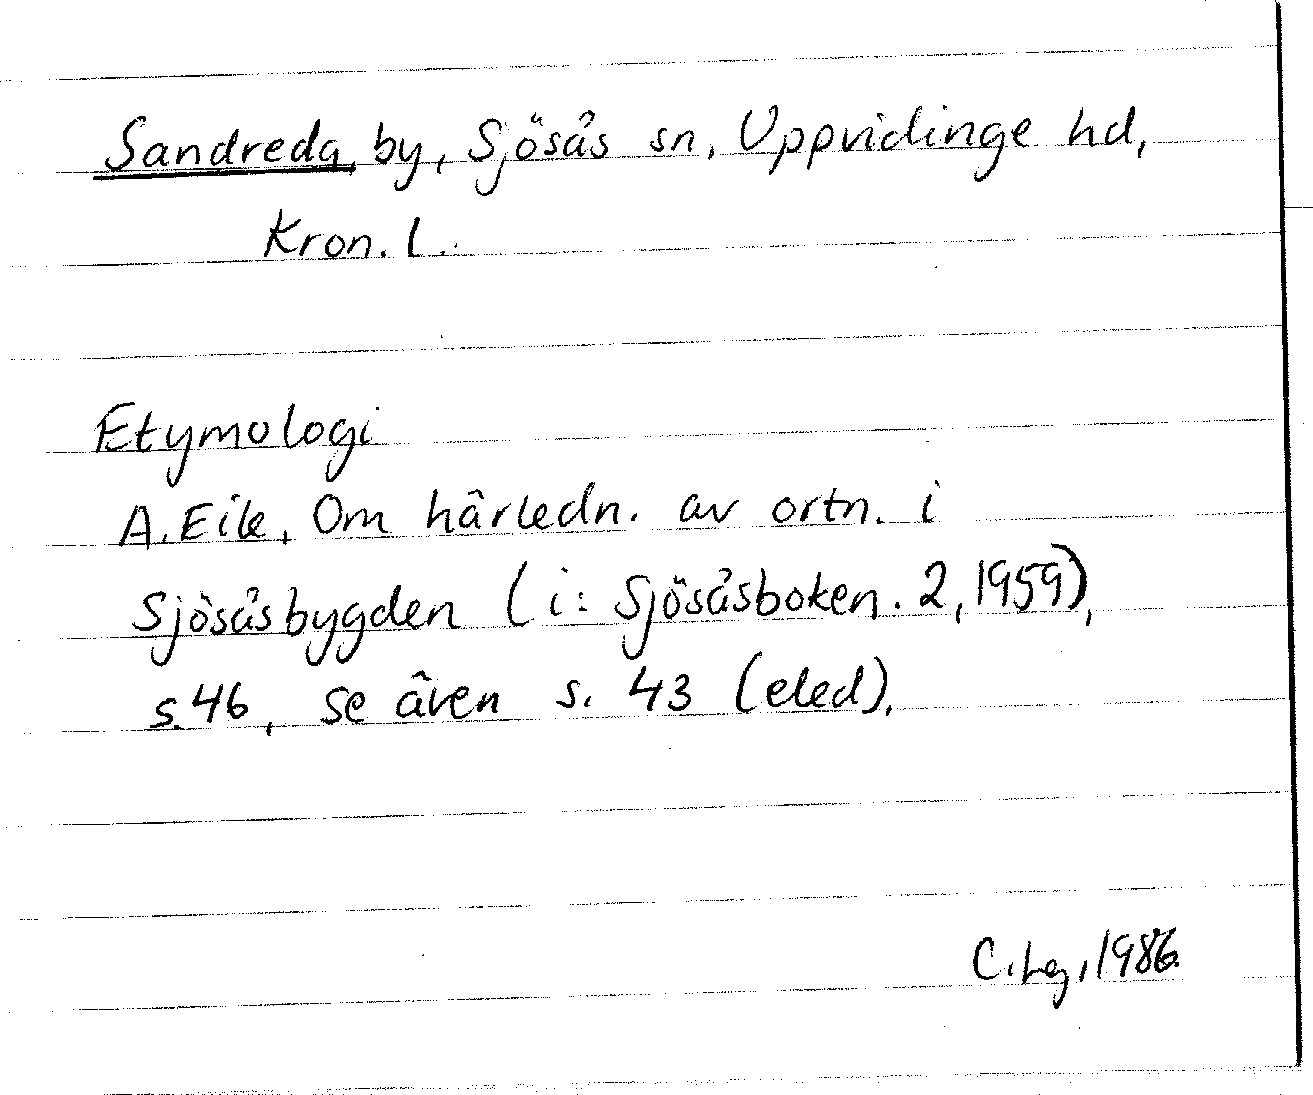 Sandreda, by, Sjösås sn, Uppvidinge hd,
Kron. l.
Etymologi
A. Eile, Om härledn. av ortn. i
Sjösåsbygden (i: Sjösåsboken. 2, 1959),
s. 46, se även s. 43 (eled).
C. Lg, 1986.